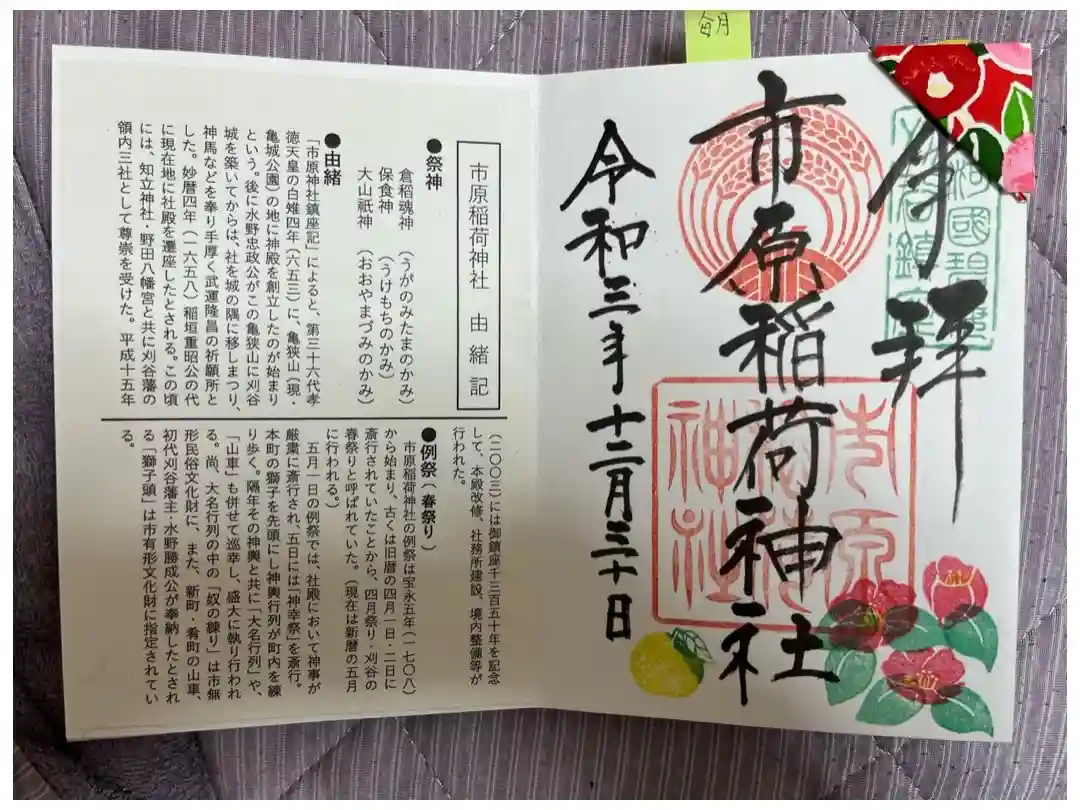 奉拝
市原稲荷神社
令和三年十二月三十日
市原
神社
市原稲荷神社 由緒記
●祭神
倉稲魂神 (うがのみたまのかみ)
保食神 (うけもちのかみ)
大山祇神 (おおやまづみのかみ)
●由緒
「市原神社鎮座記」によると、第三十六代孝
徳天皇の白雉四年(六五三)に、亀狭山(現・
亀城公園)の地に神殿を創立したのが始まり
という。後に水野忠政公がこの亀狭山に刈谷
城を築いてからは、社を城の隅に移しまつり、
神馬などを奉り手厚く武運隆昌の祈願所と
した。妙暦四年(一六五八)稲垣重昭公の代
に現在地に社殿を遷座したとされる。この頃
には、知立神社・野田八幡宮と共に刈谷藩の
領内三社として尊崇を受けた。平成十五年
(二〇〇三)には御鎮座千三百五十年を記念
して、本殿改修、社務所建設、境内整備等が
行われた。
●例祭(春祭り)
市原稲荷神社の例祭は宝永五年(一七〇八)
から始まり、古くは旧暦の四月一日・二日に
斎行されていたことから、四月祭り・刈谷の
春祭りと呼ばれていた。(現在は新暦の五月
に行われる。)
五月一日の例祭では、社殿において神事が
厳粛に斎行され、五日には「神幸祭」を斎行。
本町の獅子を先頭にし神輿行列が町内を練
り歩く。隔年その神輿と共に「大名行列」や、
「山車」も併せて巡幸し、盛大に執り行われ
る。尚、大名行列の中の「奴の練り」は市無
形民俗文化財に、また、新町・肴町の山車、
初代刈谷藩主・水野勝成公が奉納したとされ
る「獅子頭」は市有形文化財に指定されてい
る。